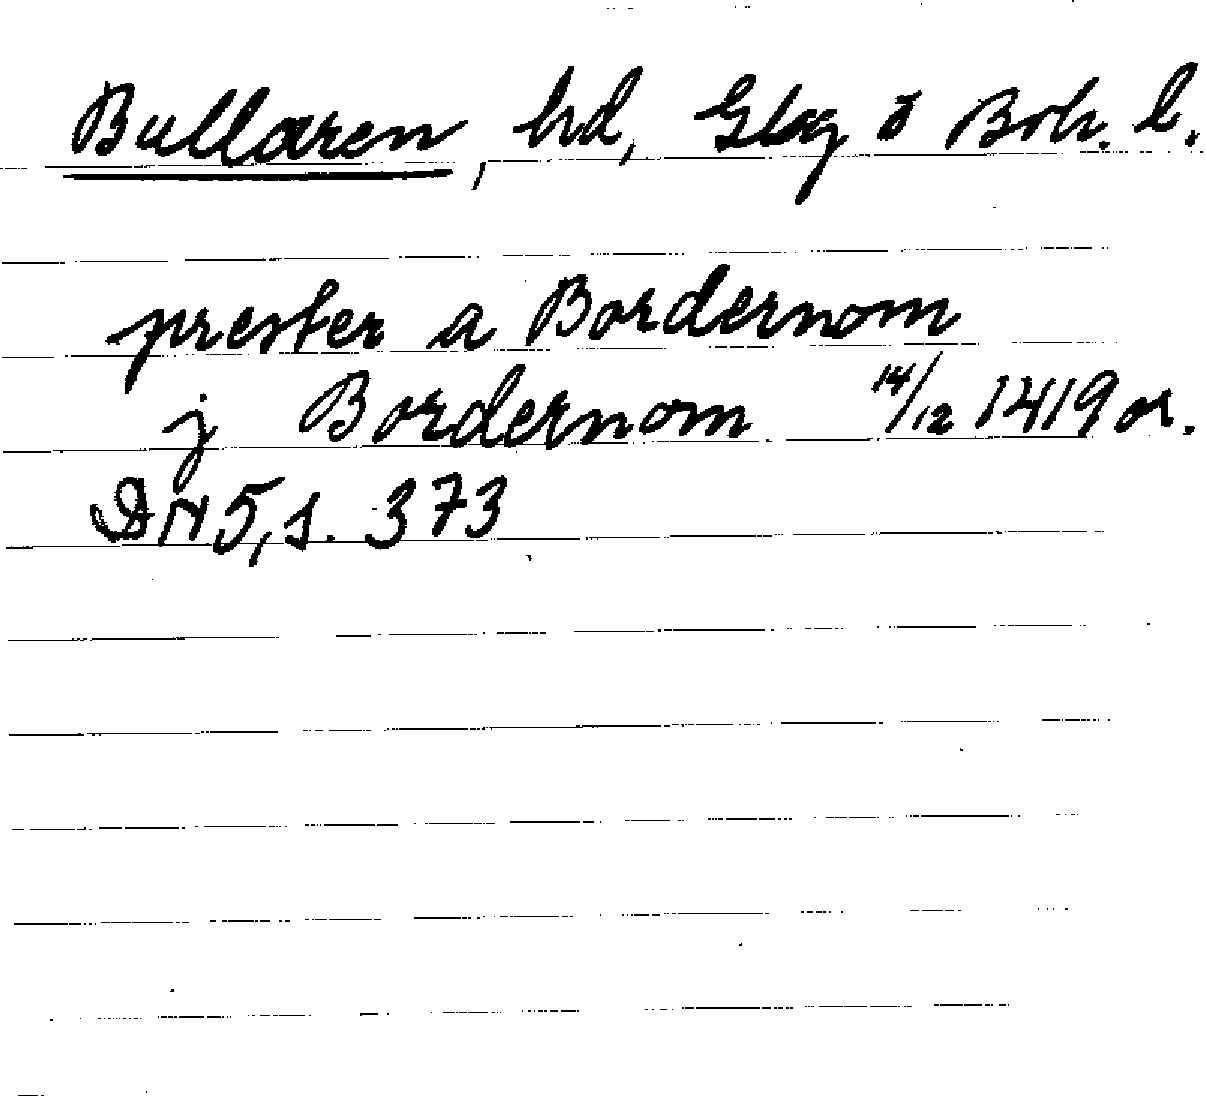 Bullaren, hd, Gbg o Boh. l.
prester a Bordernom
j Bordernom 14/12 1419 or.
DN 5, s. 373